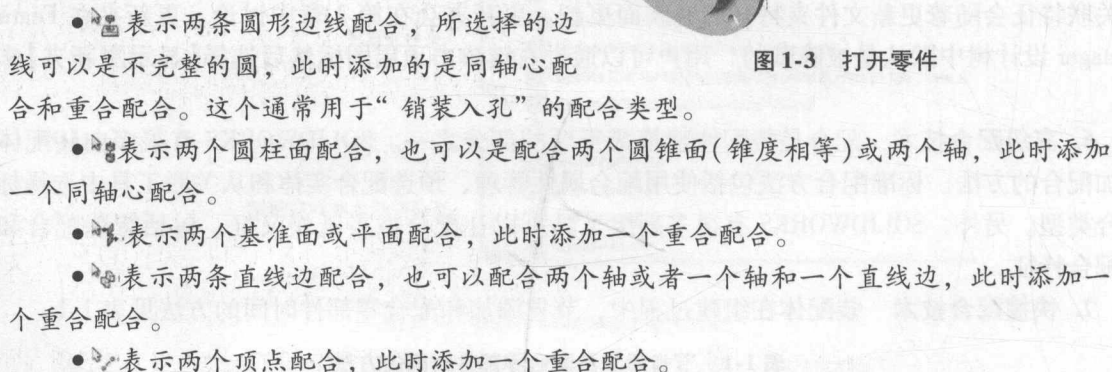 • 表示两条圆形边线配合，所选择的边
线可以是不完整的圆，此时添加的是同轴心配
图1-3 打开零件
合和重合配合。这个通常用于“销装入孔”的配合类型。
• 表示两个圆柱面配合，也可以是配合两个圆锥面(锥度相等)或两个轴，此时添加
一个同轴心配合。
• 表示两个基准面或平面配合，此时添加一个重合配合。
• 表示两条直线边配合，也可以配合两个轴或者一个轴和一个直线边，此时添加一
个重合配合。
• 表示两个顶点配合，此时添加一个重合配合。